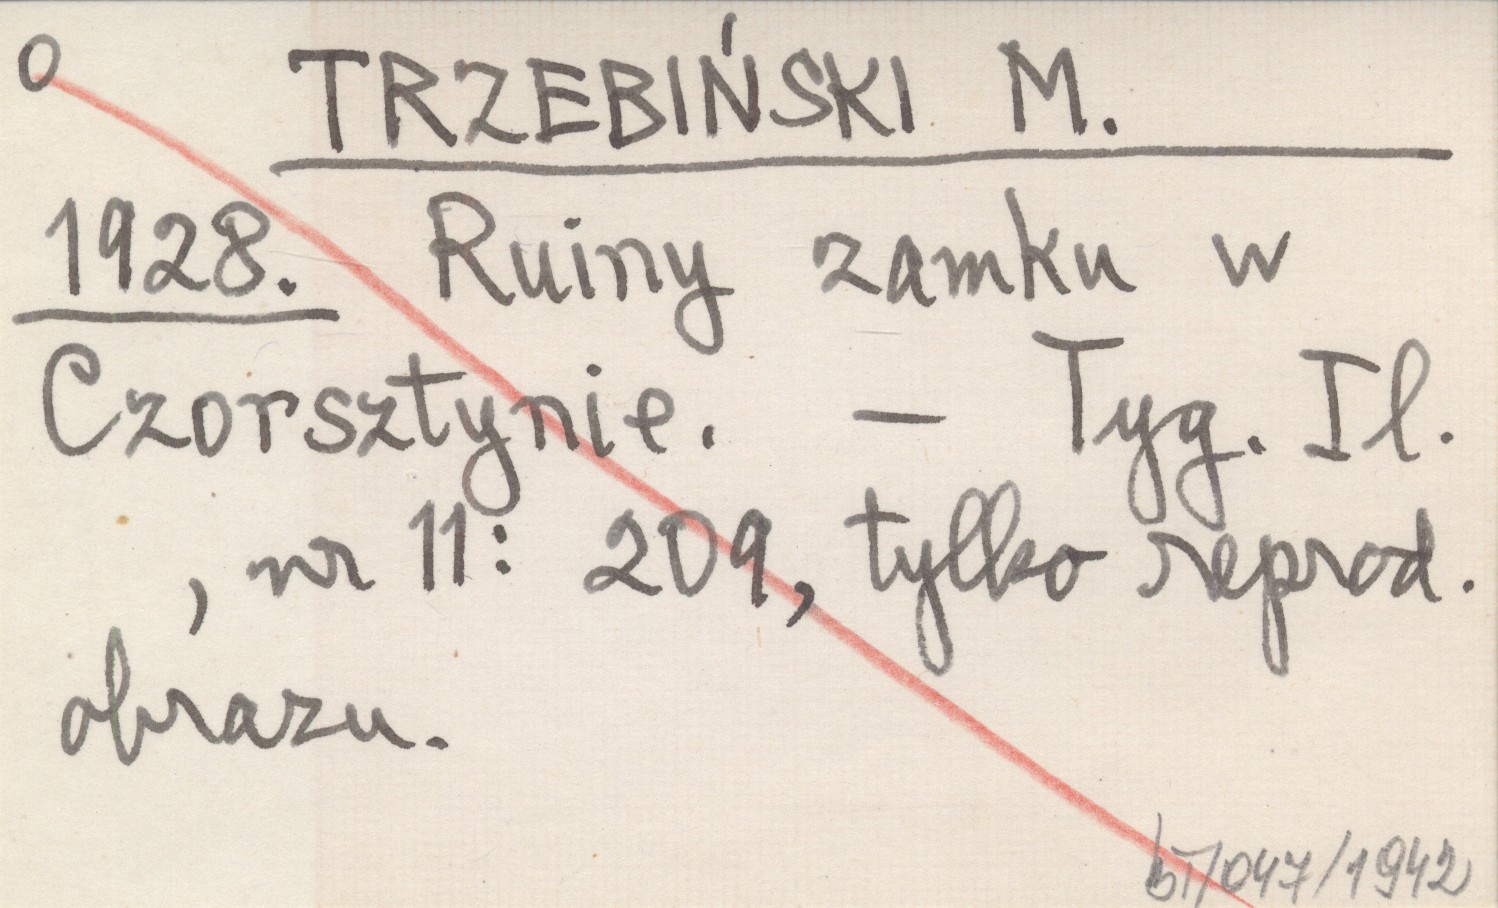 O TRZEBIŃSKI M.
1928. Ruiny zamku w
Czorsztynie. — Tyg. Il.
, nr 11: 209, tylko reprod.
obrazu.
bT/047/1942